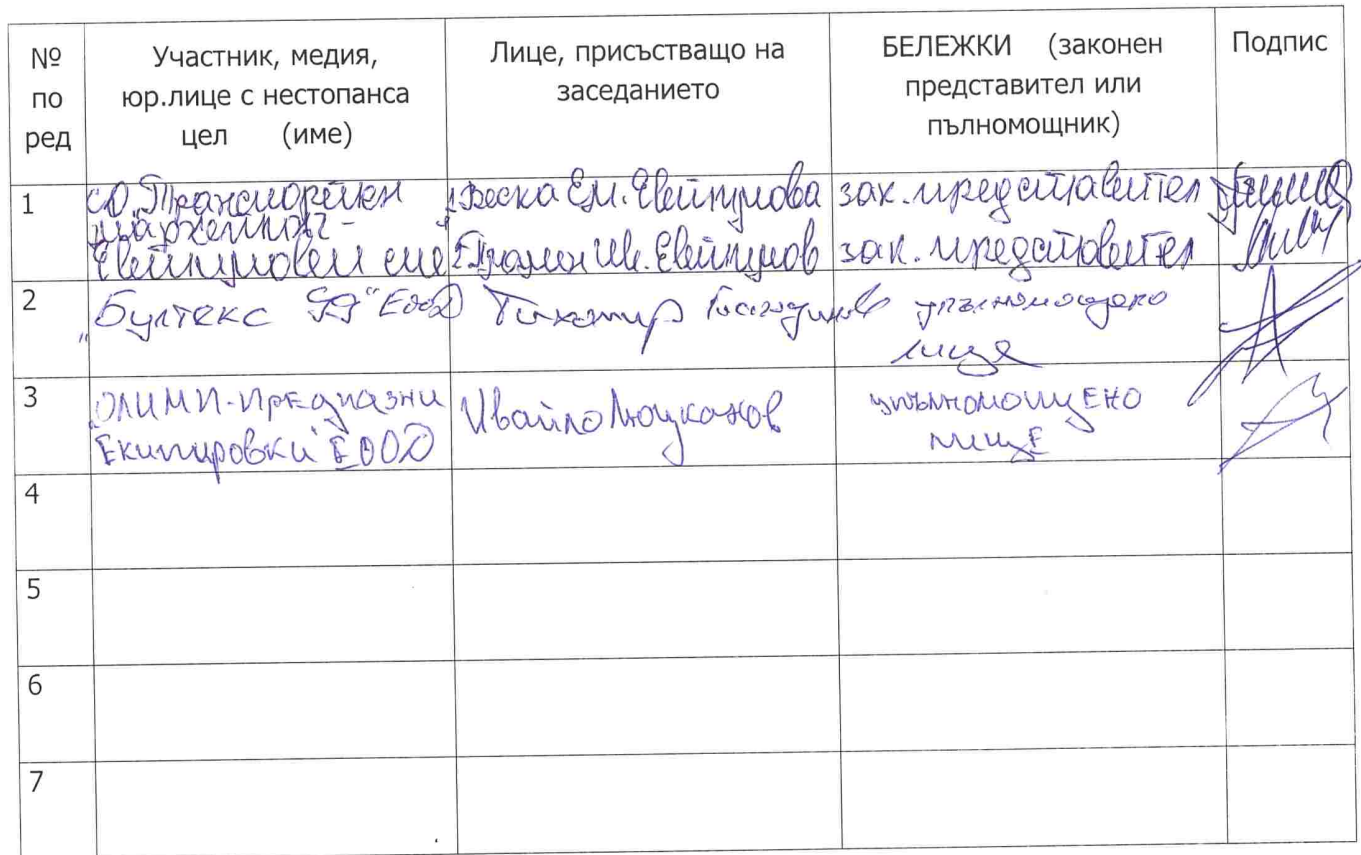 №
по
ред
Участник, медия,
юр.лице с нестопанса
цел (име)
Лице, присъстващо на
заседанието
БЕЛЕЖКИ (законен
представител или
пълномощник)
Подпис
1
Транспортен
маркетинг-
Евтимови сие
1. Веска Ем. Евтимова
2. Пламен Ив. Евтимов
зак. представител
зак. представител
2
"Бултекс 99" ЕООД
Тихомир
упълномощено
лице
3
"ОЛИМП-Предпазни
Екипировки" ЕООД
Ивайло Люцканов
упълномощЕно
лицЕ
4
5
6
7